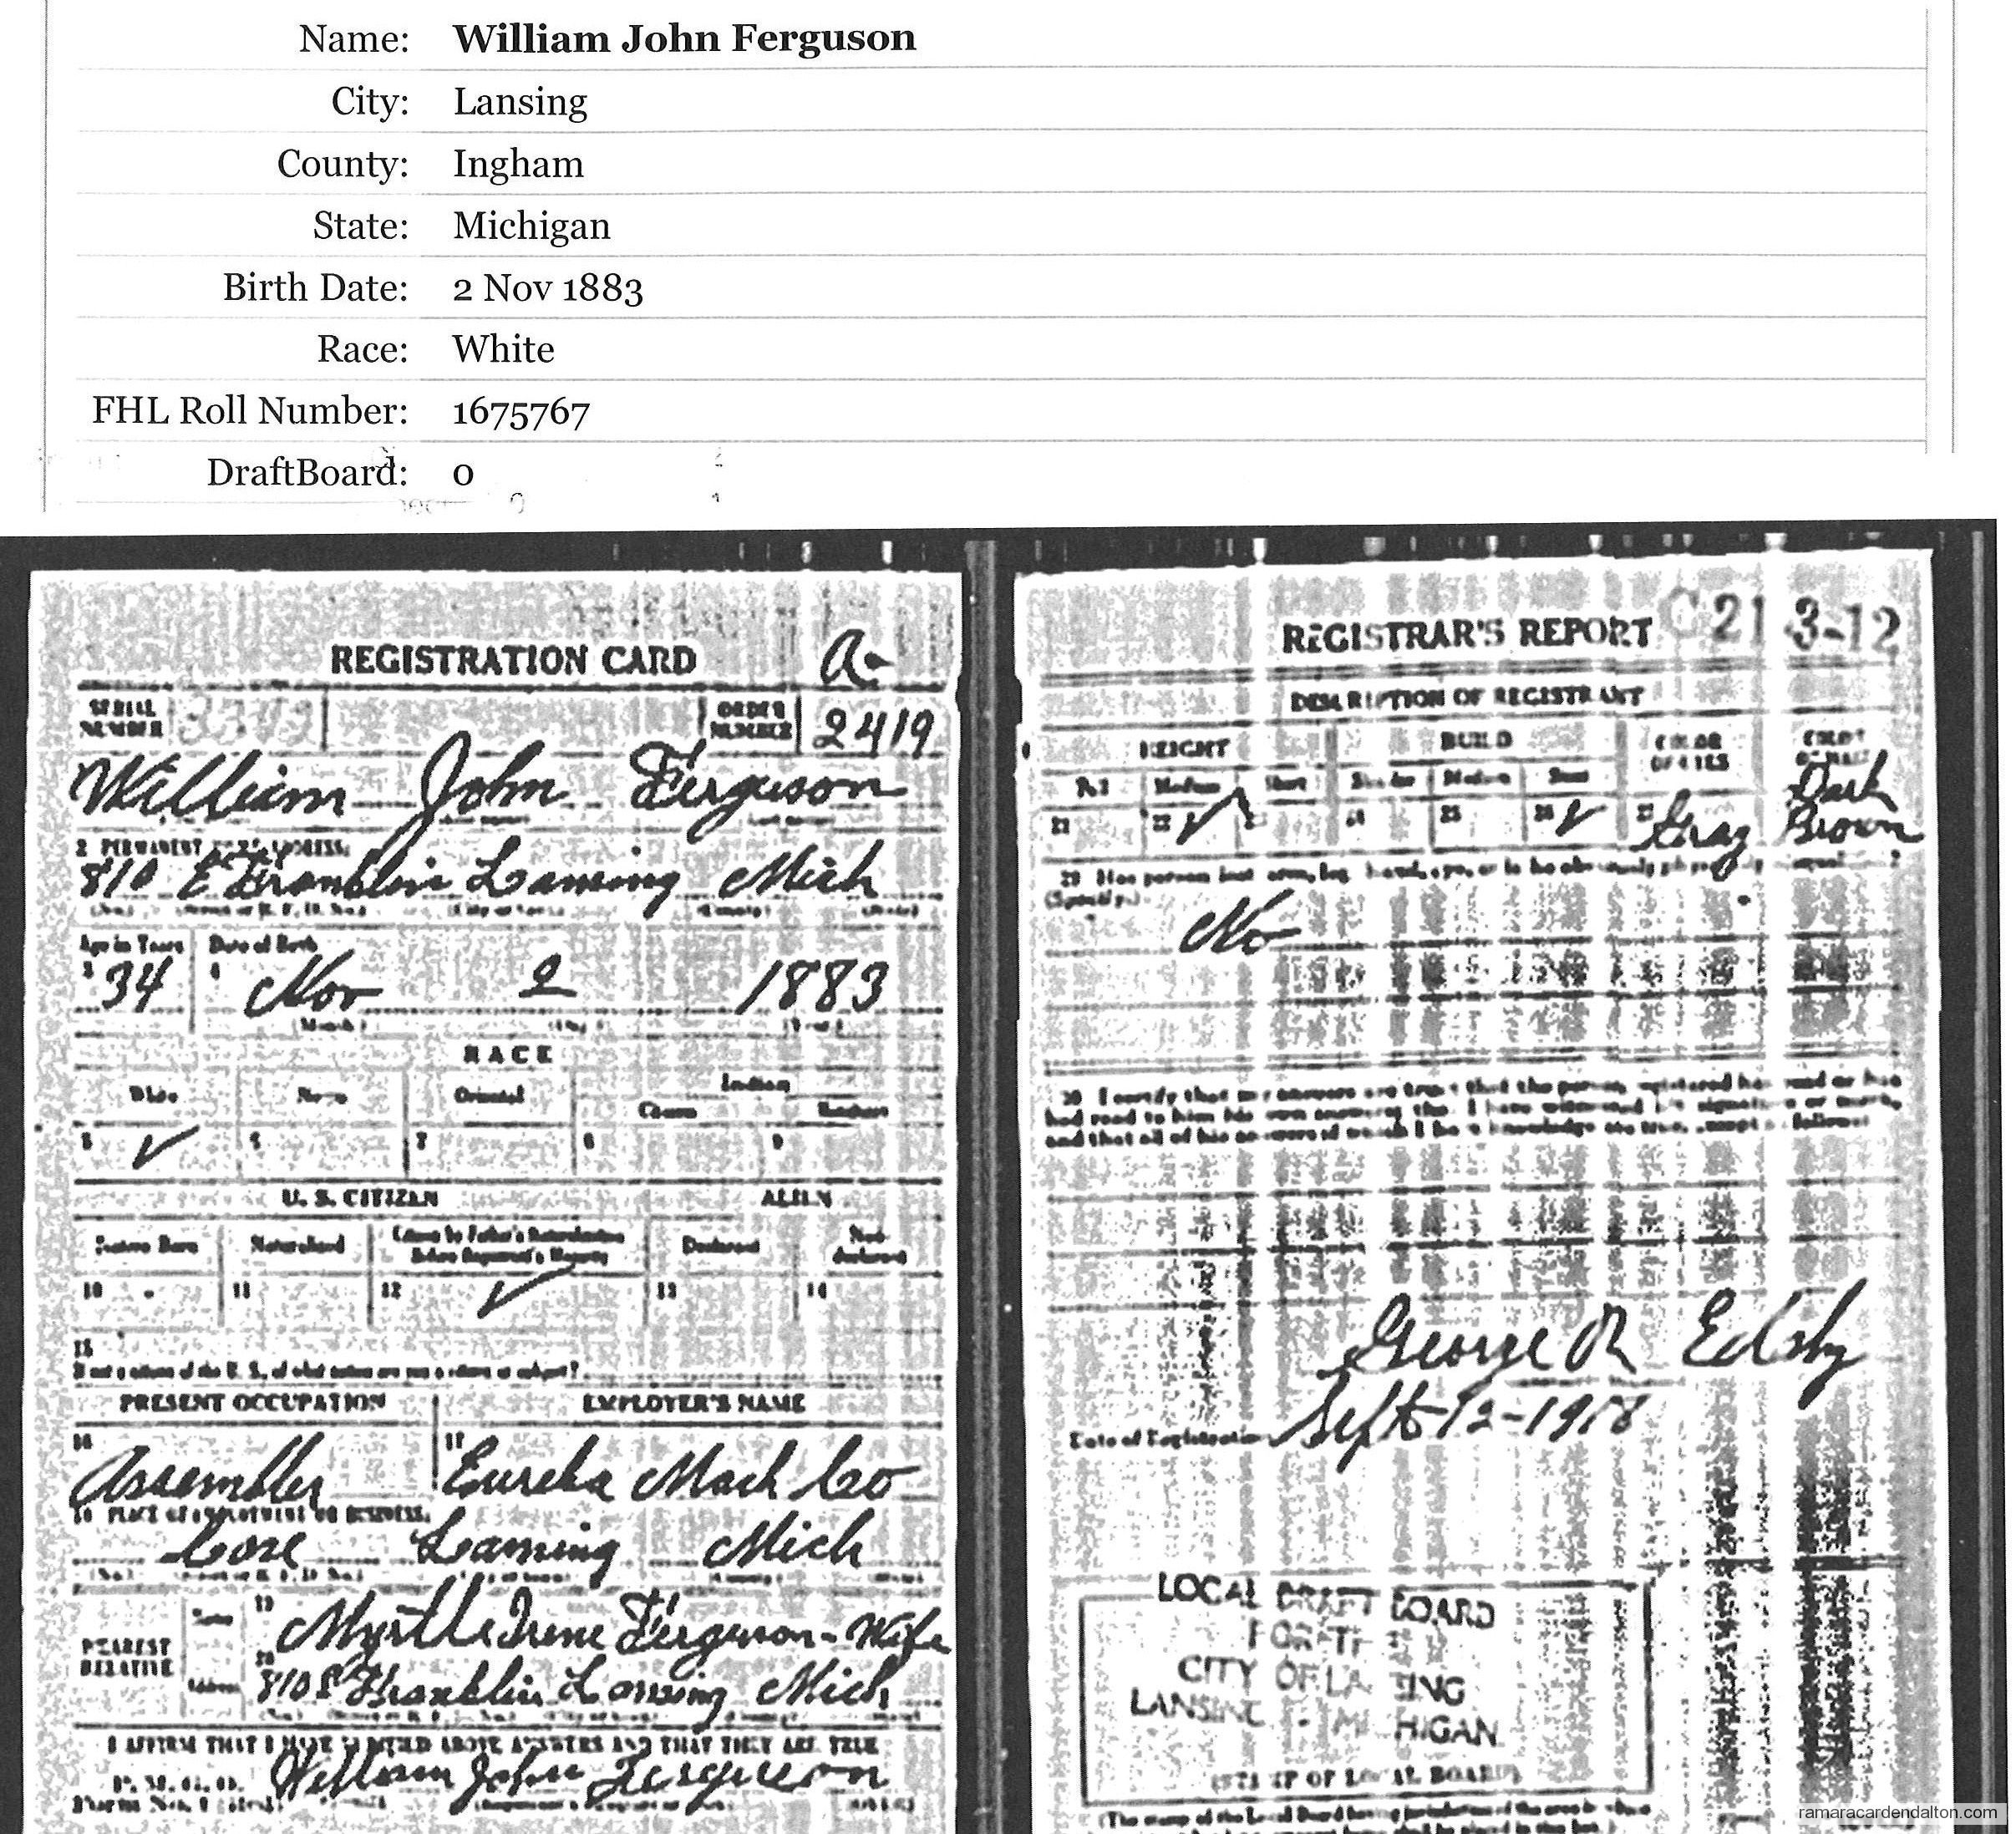 Name: William John Ferguson
City: Lansing
County: Ingham
State: Michigan
Birth Date: 2 Nov 1883
Race: White
FHL Roll Number: 1675767
DraftBoard: 0
REGISTRATION CARD A-
SERIAL NUMBER
ORDER NUMBER 2419
William John Ferguson
2 PERMANENT HOME ADDRESS
810 E Franklin Lansing Mich
Age in Years Date of Birth
3 34 4 Nov 2 1883
RACE
White Negro Oriental Indian
Citizen
5 ✓ 6 7 8 9
U. S. CITIZEN ALIEN
Native Born Naturalized Citizen by Father's Naturalization Before Registrant's Majority Declared Non-declarant
10 11 12 ✓ 13 14
15
If not a citizen of the U. S., of what nation are you a citizen or subject?
PRESENT OCCUPATION EMPLOYER'S NAME
16 Assembler 17 Eureka Mach Co
18 PLACE OF EMPLOYMENT OR BUSINESS
Lansing Mich
NEAREST RELATIVE
Name 19 Myrtle Irene Ferguson - Wife
Address 20 810 E Franklin Lansing Mich
I AFFIRM THAT I HAVE VERIFIED ABOVE ANSWERS AND THAT THEY ARE TRUE
P. M. G. O.
Form No. 1
William John Ferguson
REGISTRAR'S REPORT C 21 3-12
DESCRIPTION OF REGISTRANT
HEIGHT BUILD COLOR OF EYES COLOR OF HAIR
Tall Medium Short Slender Medium Stout
21 22 ✓ 23 24 25 26 ✓ 27 Gray Dark Brown
29 Has person lost arm, leg, hand, eye, or is he obviously physically
(Specify.)
No
30 I certify that my answers are true; that the person registered has read or has
had read to him his own answers; that I have witnessed his signature or mark,
and that all of his answers of which I have knowledge are true, except as follows:
George R
Date of Registration Sept 12-1918
LOCAL DRAFT BOARD
FOR THE
CITY OF LANSING
LANSING - MICHIGAN
(STAMP OF LOCAL BOARD)
(The stamp of the Local Board having jurisdiction of the area in which
ramaracardendalton.com